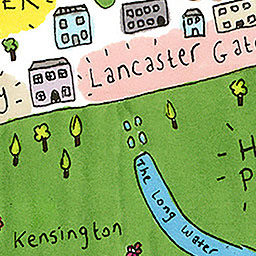 Lancaster Gat
The Long Water
Kensington
H
P